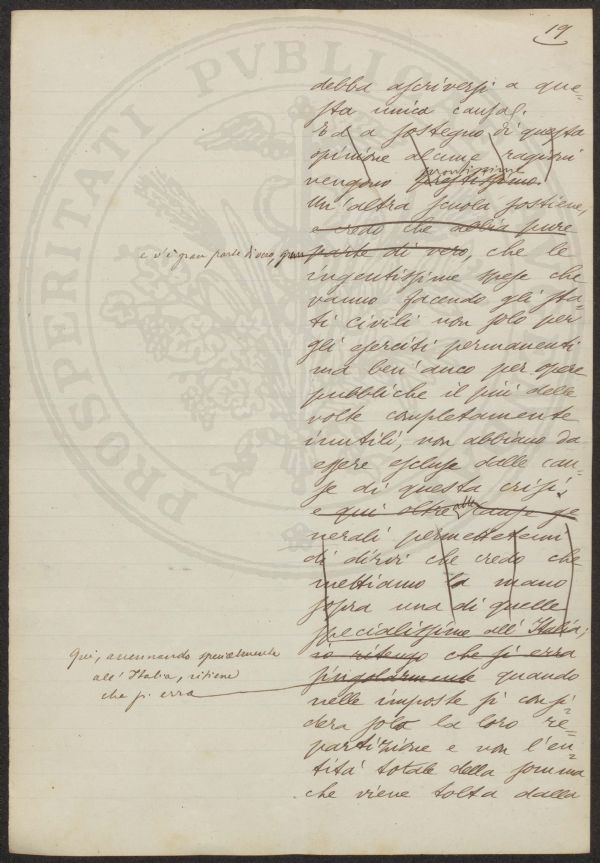 19
debba ascriversi a que=
sta unica causa.
Ed a sostegno di questa
opinione alcune ragioni
prontissime
vengono prestissimo.
Un'altra scuola sostiene,
e credo che abbia pure
e v'è gran parte di vero, parte di vero, che le
ingentissime spese che
vanno facendo gli sta=
ti civili non solo per
gli eserciti permanenti
ma ben'anco per opere
pubbliche il più delle
volte completamente
inutili, non abbiano da
essere escluse dalle cau=
se di questa crisi.
e qui oltre alle cause ge=
nerali permettetemi
di dirvi che credo che
mettiamo la mano
sopra una di quelle
specialissime all'Italia;
Qui, accennando specialmente
all'Italia, ritiene
che si erra
io ritengo che si erra
singolarmente quando
nelle imposte si consi=
dera solo la loro re=
partizione e non l'en=
tità totale della somma
che viene tolta dalla
PROSPERITATI PVBLICAE